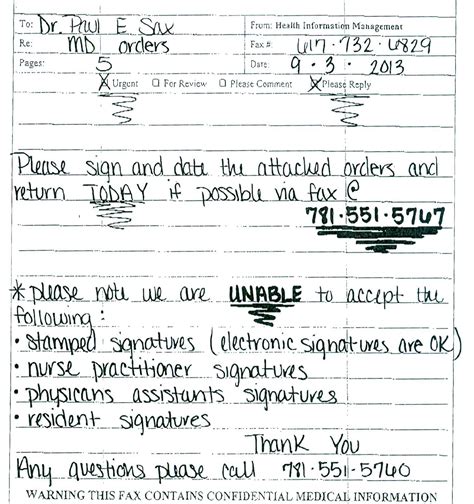 To: Dr. Paul E. Sax From: Health Information Management
Re: MD orders Fax #: 617.732.6829
Pages: 5 Date: 9.3.2013
X Urgent □ For Review □ Please Comment X Please Reply
Please sign and date the attached orders and
return TODAY if possible via fax @
781.551.5767
* please note we are UNABLE to accept the
following:
• stamped signatures (electronic signatures are OK)
• nurse practitioner signatures
• physicans assistants signatures
• resident signatures
Thank You
Any questions please call 781-551-5740
WARNING THIS FAX CONTAINS CONFIDENTIAL MEDICAL INFORMATION